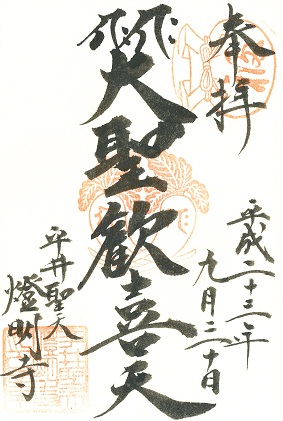 奉拝
平成二十三年
九月二十日
大聖歓喜天
平井聖天
燈明寺